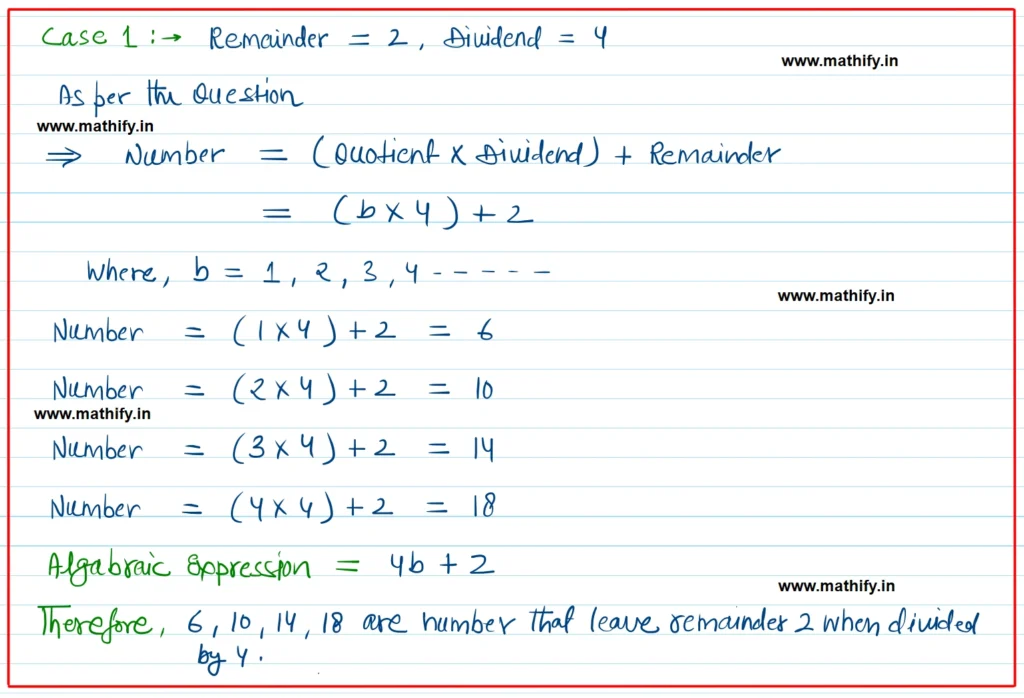 Case 1 :→ Remainder = 2, Dividend = 4
www.mathify.in
As per the Question
www.mathify.in
⇒ Number = (Quotient × Dividend) + Remainder
= (b × 4) + 2
Where, b = 1, 2, 3, 4 - - - - -
www.mathify.in
Number = (1 × 4) + 2 = 6
Number = (2 × 4) + 2 = 10
www.mathify.in
Number = (3 × 4) + 2 = 14
Number = (4 × 4) + 2 = 18
Algabraic Expression = 4b + 2
www.mathify.in
Therefore, 6, 10, 14, 18 are number that leave remainder 2 when divided
by 4.